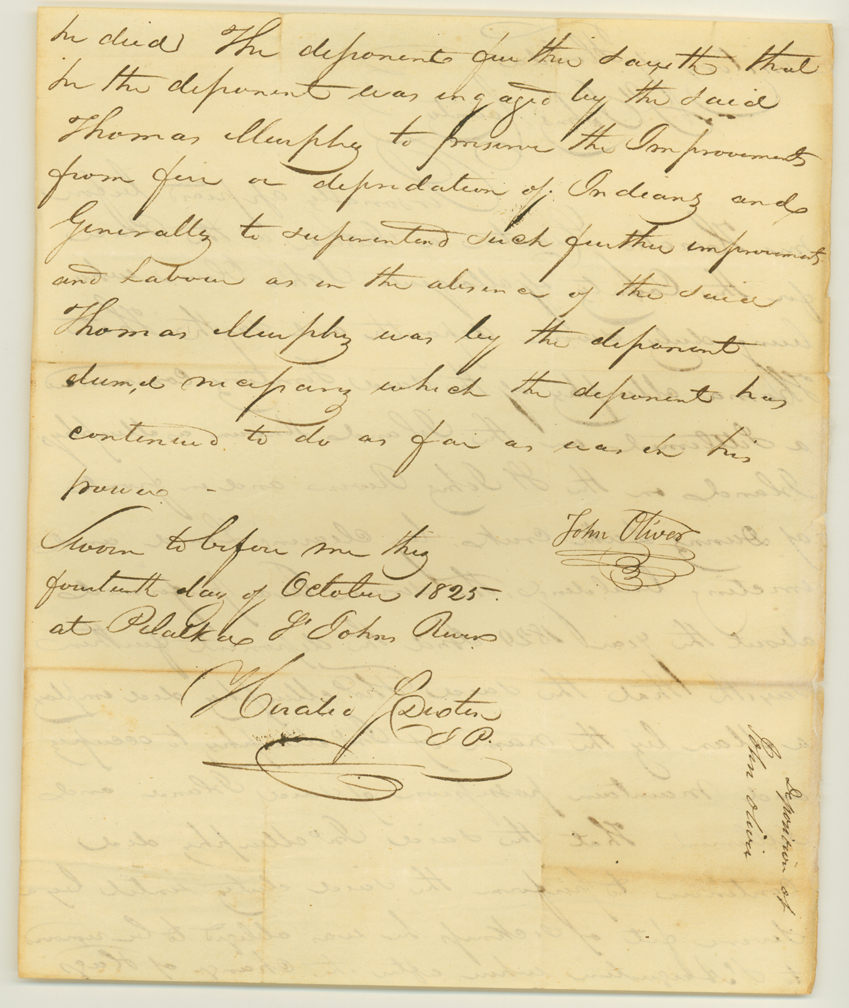 he died) The deponent further sayeth that
he the deponent was engaged by the said
Thomas Murphy to preserve the Improvements
from fire or depridation of Indians and
Generally to superintend such further improvements
and Labour as in the absence of the said
Thomas Murphy was by the deponent
deem,d necessary which the deponent has
continued to do as far as was in his
power -
John Oliver
Sworn to before me this
fourteenth day of October 1825.
at Pilatka St Johns River
Horatio S Dexter
J P.
Deposition of
John Oliver